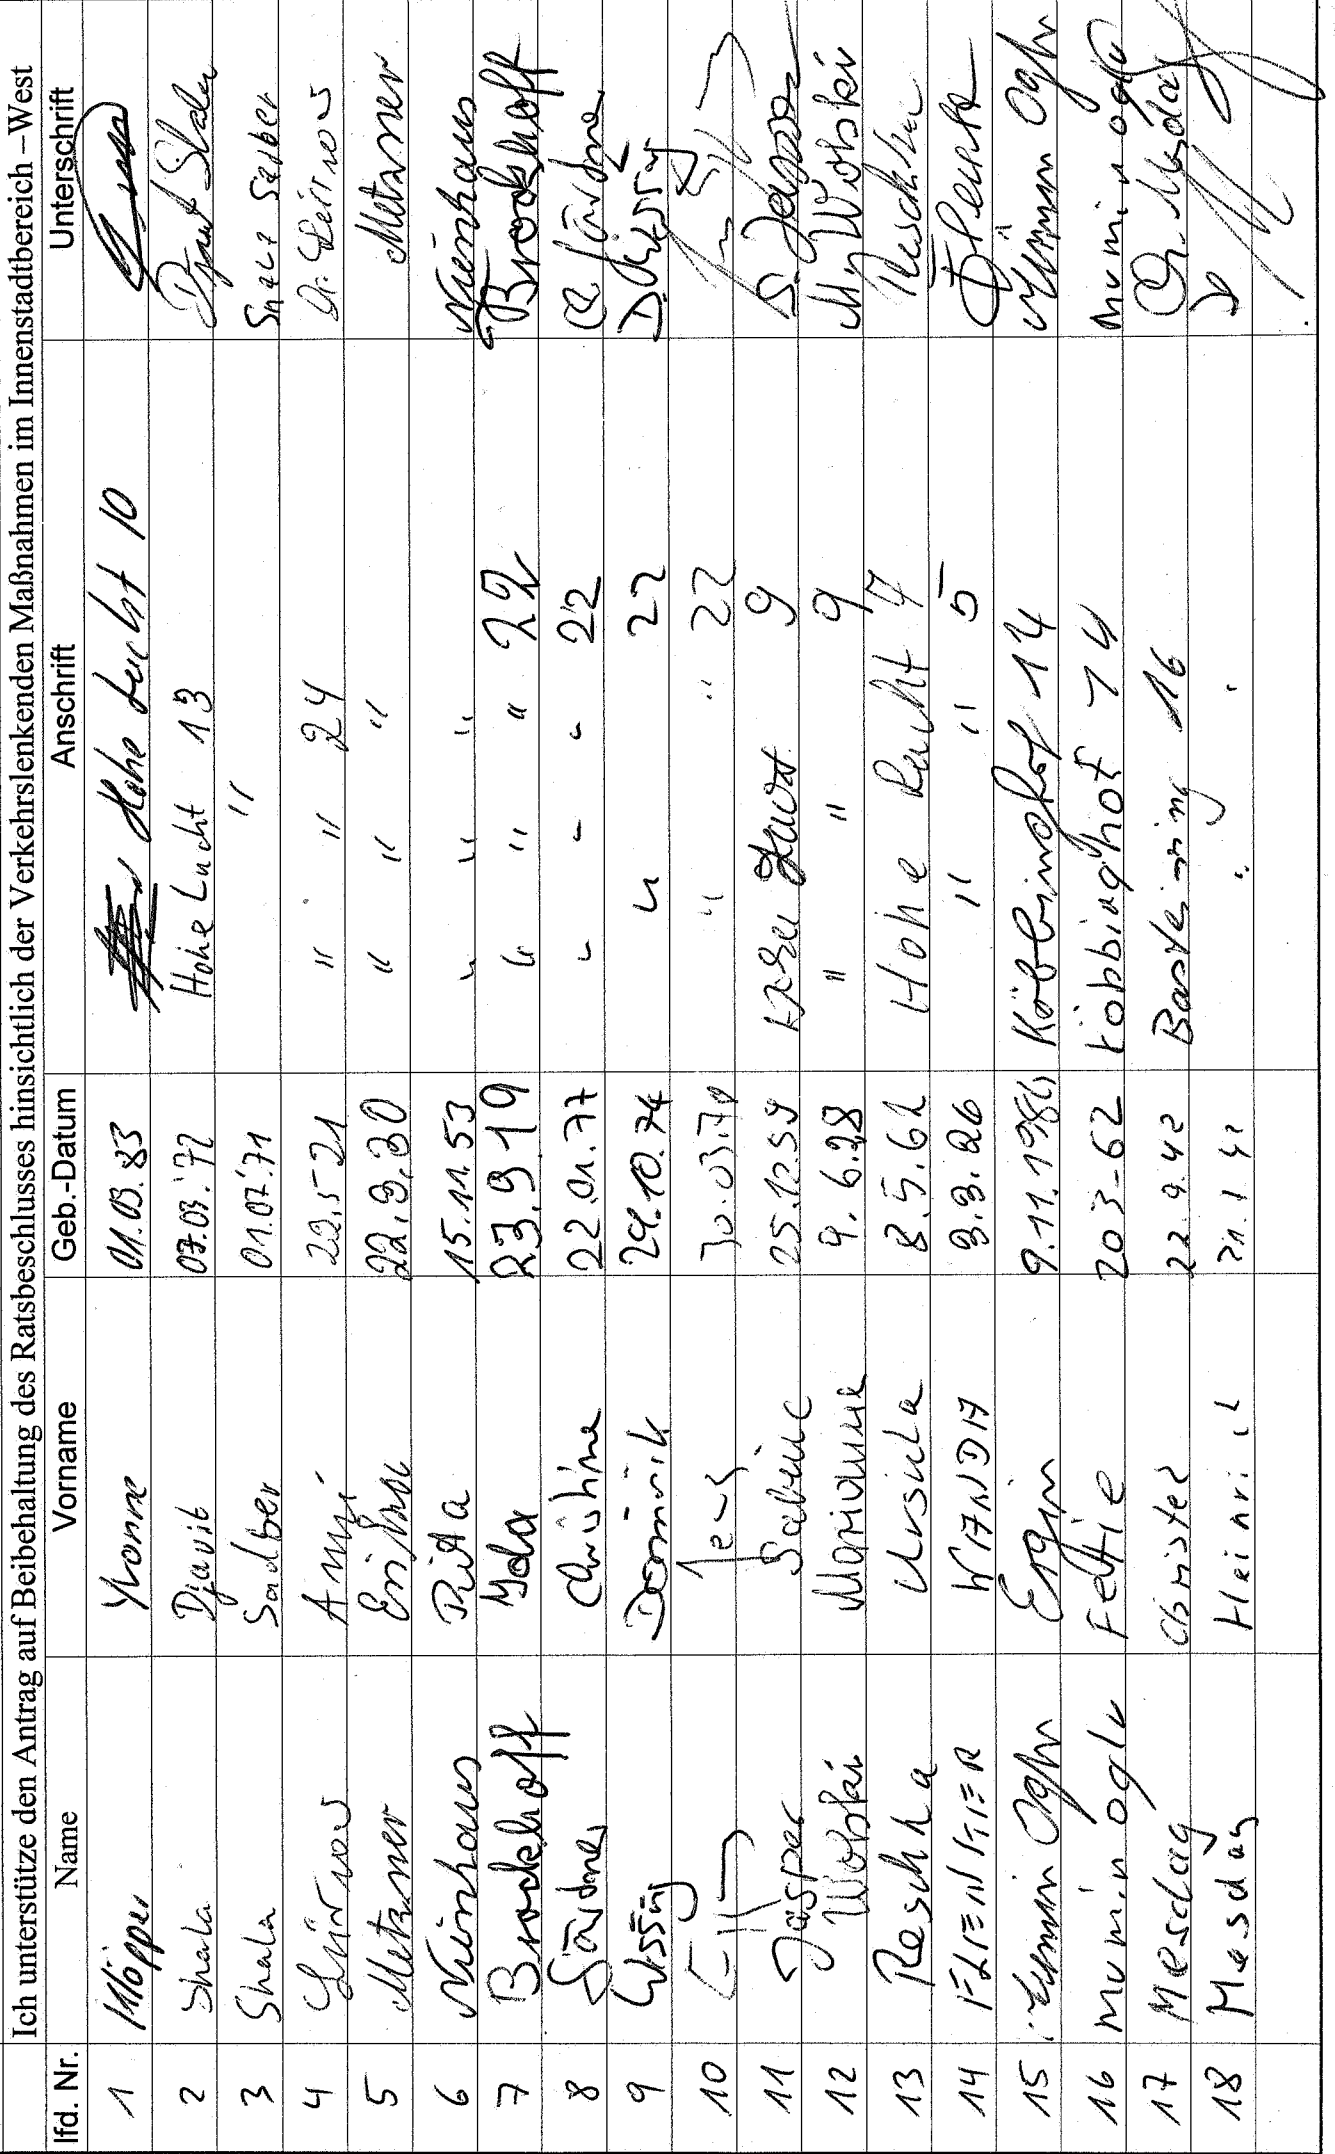 Ich unterstütze den Antrag auf Beibehaltung des Ratsbeschlusses hinsichtlich der Verkehrslenkenden Maßnahmen im Innenstadtbereich –West
lfd. Nr. Name Vorname Geb.-Datum Anschrift Unterschrift
1 Klöpper Yvonne 01.03.83 Hohe Lucht 10
2 Shala Djavit 07.03.'72 Hohe Lucht 13 Djavit Shala
3 Shala Sadber 01.07.'71 "
4 Anni 22.5.21 " " 24
5 Metzner 22.9.30 " " " Metzner
6 Nienhaus Rita 15.11.53 " " " Nienhaus
7 Brockhoff Ida 23.9 19 " " " 22 Brockhoff
8 Gärtner Christine 22.01.77 " - " 22 C. Gärtner
9 Dominik 29.10.74 " 22
10 Jens 30.03.70 " " 22
11 Jasper Sabine 25.12.59 Hohe Lucht 9 S. Jasper
12 Wobski Marianne 9.6.28 " " 9 M. Wobski
13 Reschka Ursula 8.5.61 Hohe Lucht 7 Reschka
14 WANDA 3.3.26 " " 5
15 Mümin Oglu Ergin 9.11.1980 Köbbinghof 14 Mümin Oglu
16 mumin oglu Fettie 20 3-62 köbbinghof 14 mumin oglu
17 Mesdag Christel 22.9.42 Basteiring 16 Ch. Mesdag
18 Mesdag Heinrich 21.1.41 " "